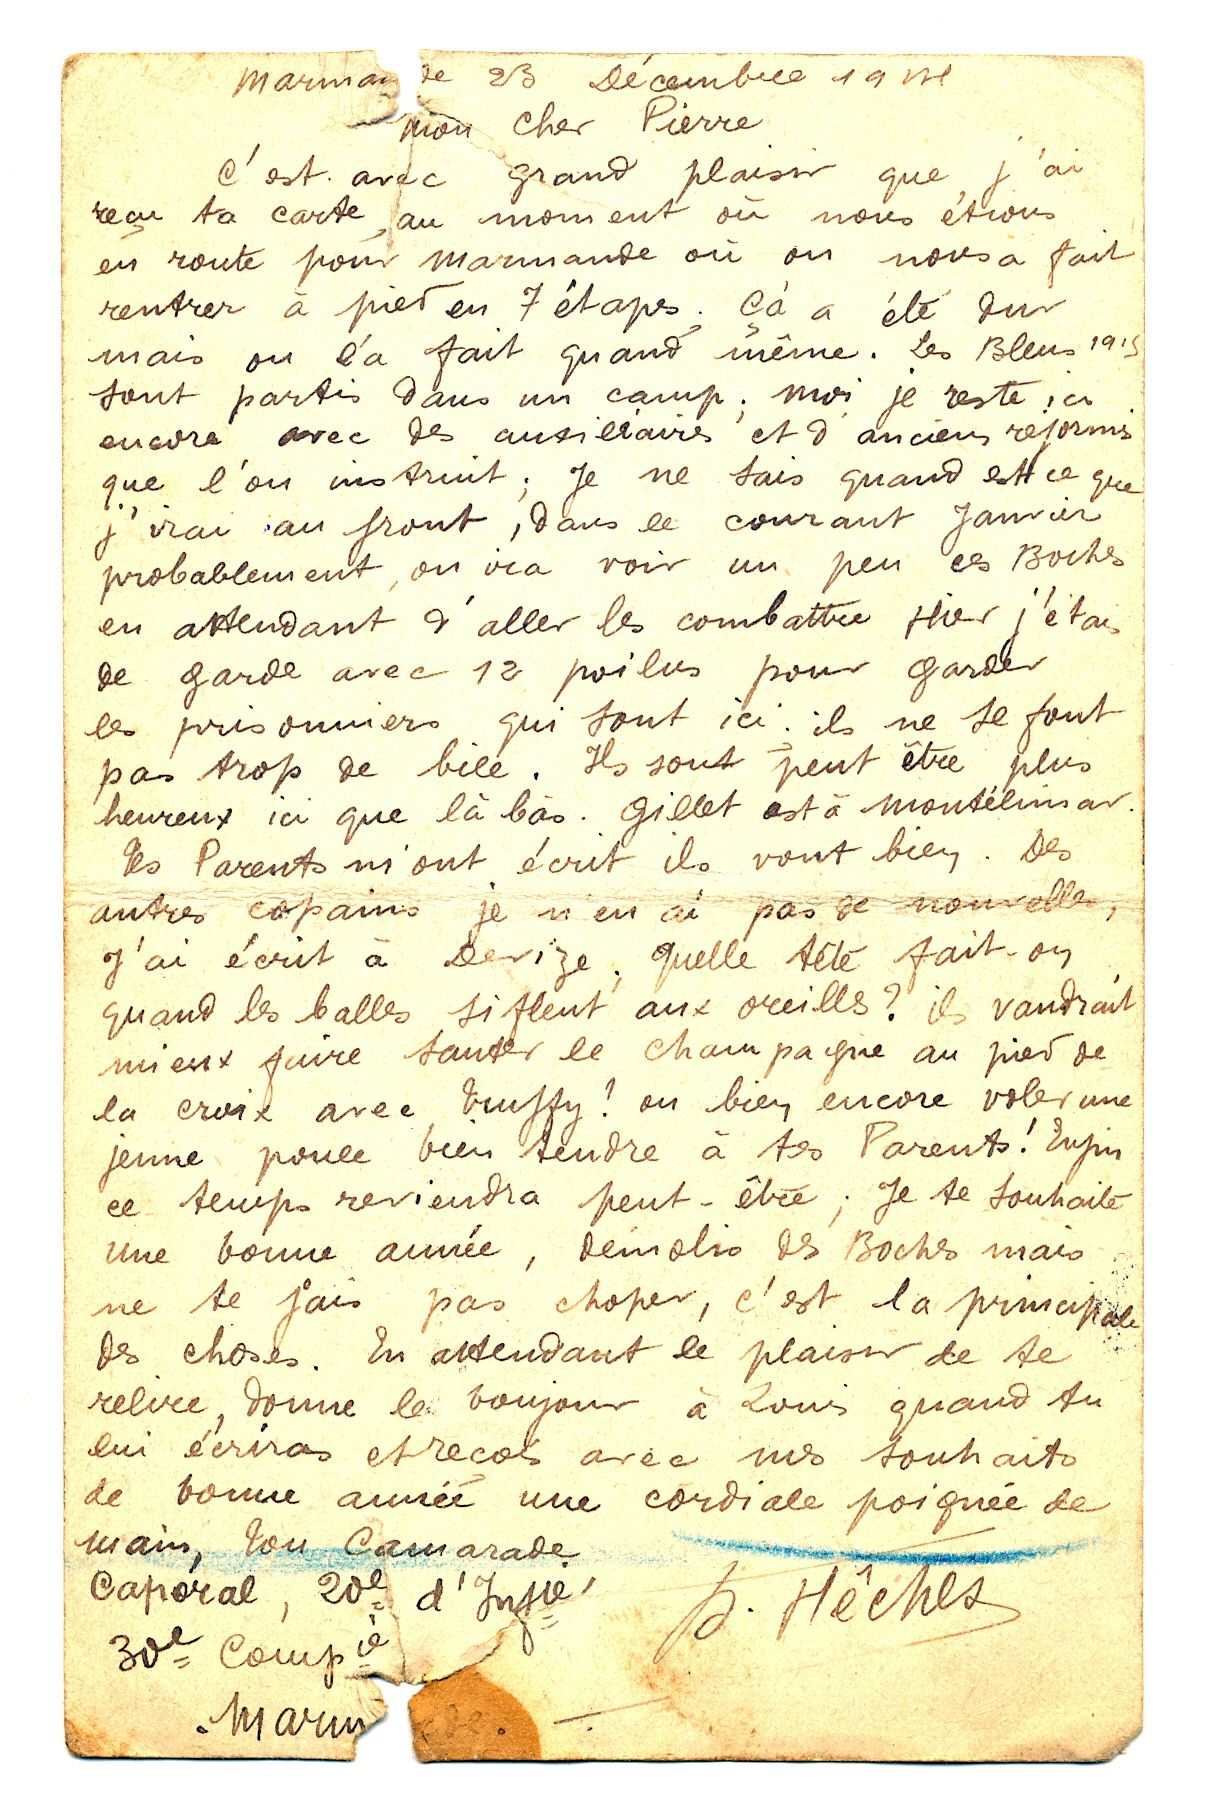 Marman de 23 Décembre 1914
Mon cher Pierre
C'est avec grand plaisir que j'ai
reçu ta carte, au moment où nous étions
en route pour Marmande où on nous a fait
rentrer à pied en 7 étapes. Çà a été dur
mais on l'a fait quand même. Les Bleus 1915
sont partis dans un camp; moi je reste ici
encore avec des auxiliaires et d'anciens réformés
que l'on instruit; Je ne sais quand est ce que
j'irai au front, dans le courant Janvier
probablement, on ira voir un peu ces Boches
en attendant d'aller les combattre Hier j'étais
de garde avec 12 poilus pour garder
les prisonniers qui sont ici; ils ne se font
pas trop de bile. Ils sont peut être plus
heureux ici que là bàs. Gillet est à Montélimar.
Tes Parents m'ont écrit ils vont bien. Des
autres copains je n'en ai pas de nouvelles,
J'ai écrit à Devize; quelle tête fait-on
quand les balles siflent aux oreilles? ils vaudrait
mieux faire sauter le champagne au pied de
la croix avec Truffy! ou bien encore voler une
jeune poule bien tendre à tes Parents! Enfin
ce temps reviendra peut-être; Je te souhaite
une bonne année, démolis des Boches mais
ne te fais pas choper, c'est la principale
des choses. En attendant le plaisir de te
relire, donne le bonjour à Louis quand tu
lui écriras et reçois avec mes souhaits
de bonne année une cordiale poignée de
main, Ton Camarade
Caporal, 20e d'Infie
30e Compie
Hêches
Marm de.